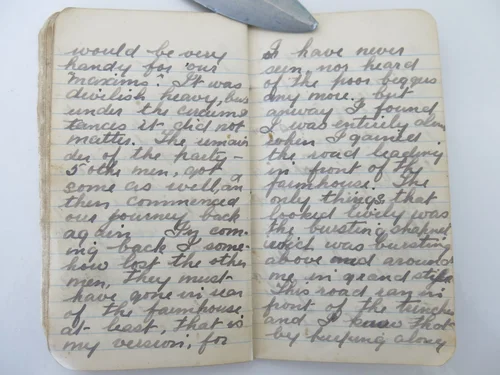 would be very
handy for our
"maxims". It was
divilish heavy, but
under the circums
tances it did not
matter. The remain
der of the party -
5 othe men, got
some as well, an
then commenced
our journey back
again. In com-
ing back I some-
how lost the other
men, they must
have gone in rear
of the farmhouse,
at least, that is
my version, for
I have never
seen nor heard
of the poor beggers
any more, but
anyway I found
I was entirely alone
when I gained
the road leading
in front of the
farmhouse. The
only things that
looked lively was
the bursting shapnel
which was bursting
above and around
me in grand style.
This road ran in
front of the trenches
and I knew that
by buring along